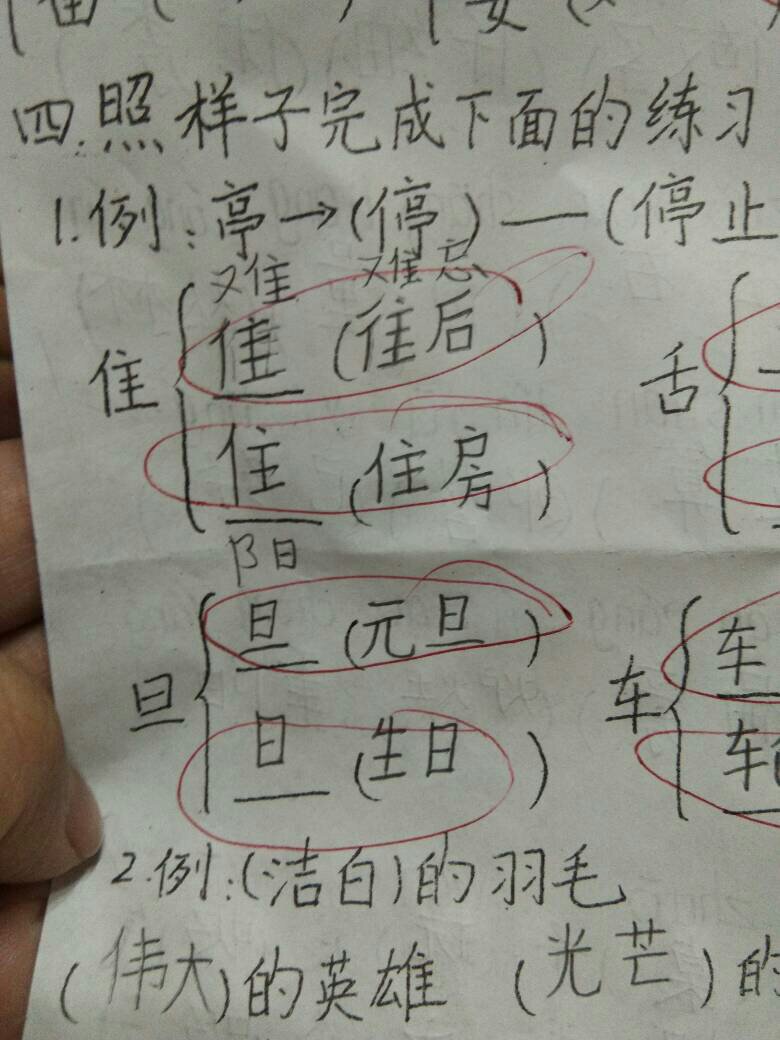 四.照样子完成下面的练习
1.例:亭→(停)—(停止
难 难忘
隹 (往后)
隹 舌
住 (住房)
阳
旦 (元旦)
旦 车 车
日 (生日) 车
2.例:(洁白)的羽毛
(伟大)的英雄 (光芒)的